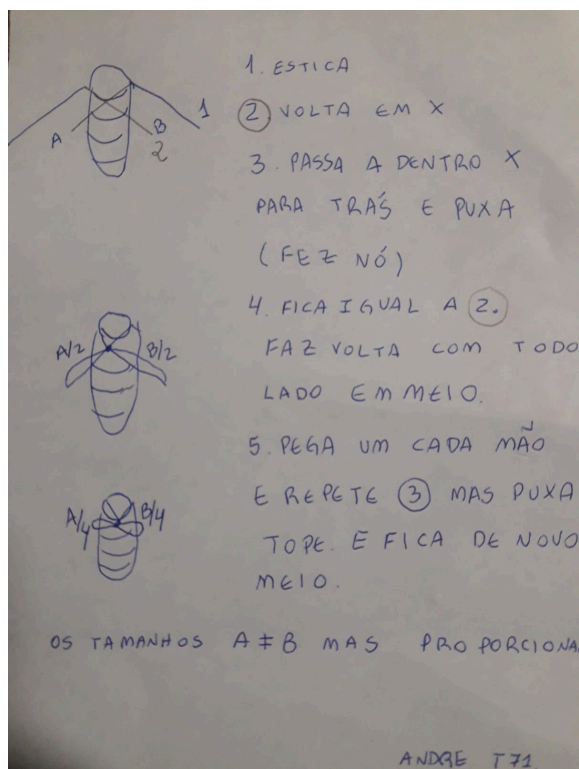 1. ESTICA
1
② VOLTA EM X
A
B
2
3. PASSA A DENTRO X
PARA TRÁS E PUXA
(FEZ NÓ)
4. FICA IGUAL A ②.
A/2
B/2
FAZ VOLTA COM TODO
LADO EM MEIO.
5. PEGA UM CADA MÃO
E REPETE ③ MAS PUXA
A/4
B/4
TOPE. E FICA DE NOVO
MEIO.
OS TAMANHOS A ≠ B MAS PROPORCIONA
ANDRE T71